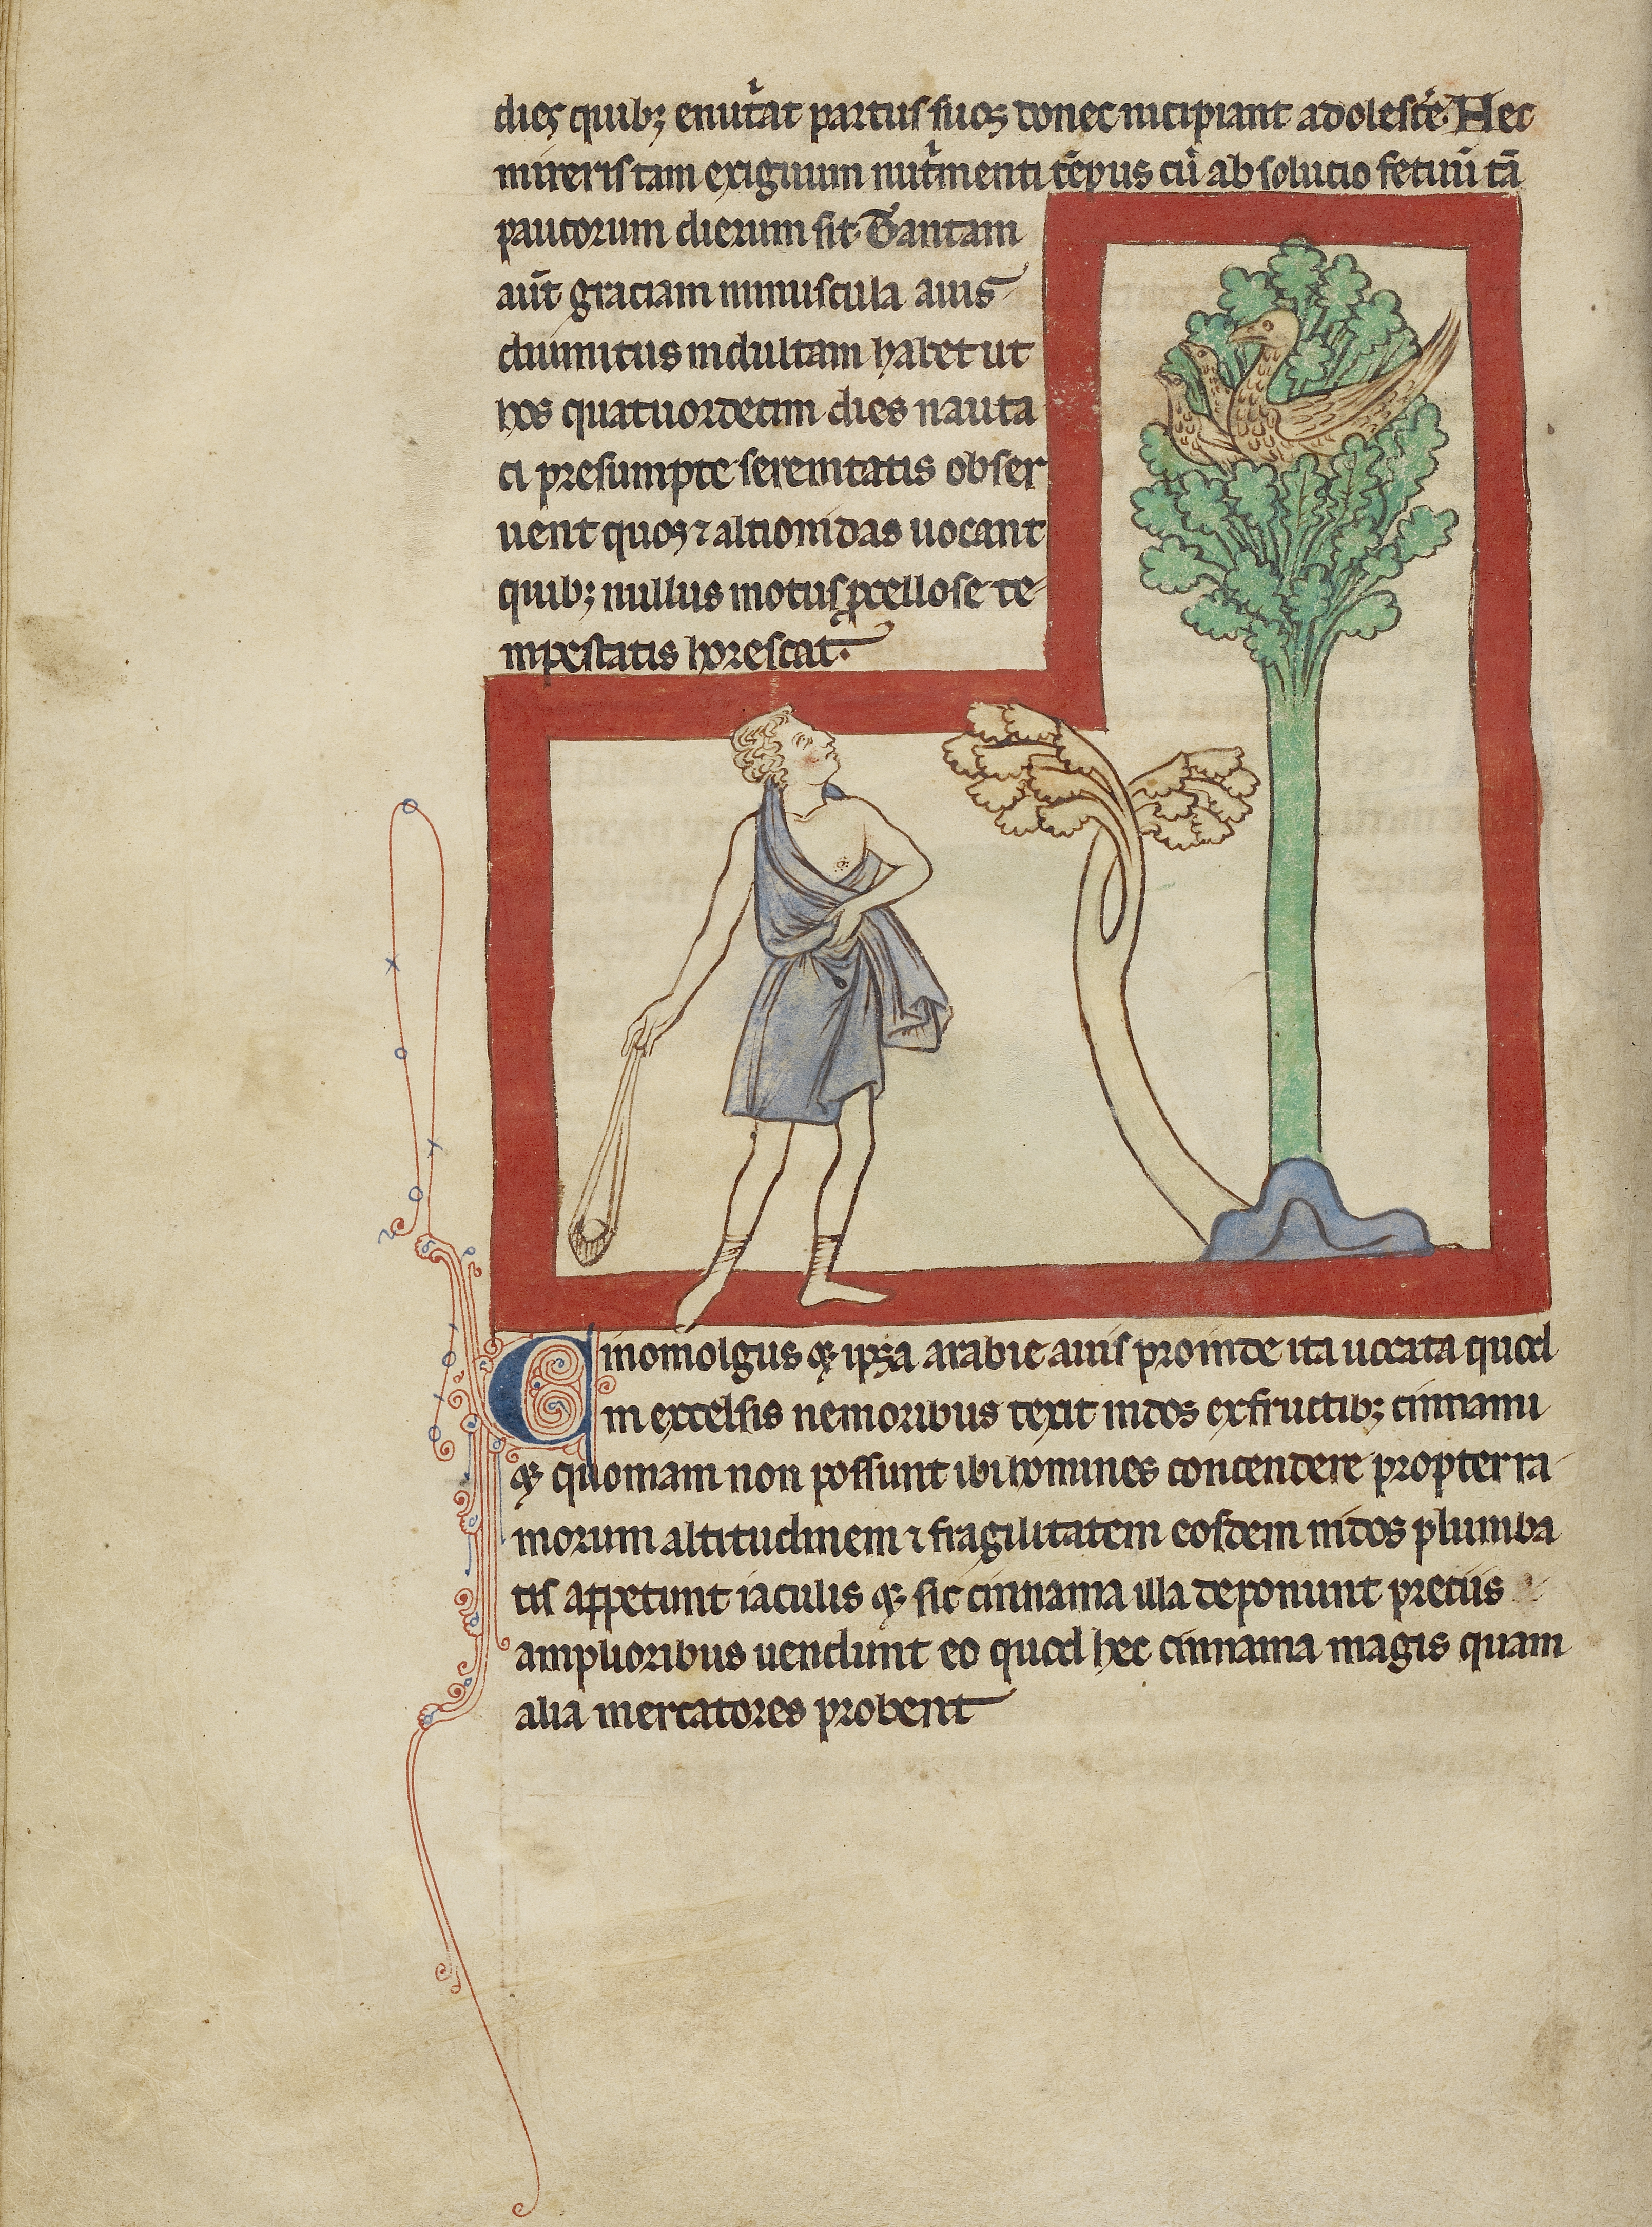 dies quibꝫ enut͛at partus suos donec incipiant adolesc̄e. Hec
mireris tam exiguum nut͛menti tēpus cū absolucio fetuū tā
paucorum dierum sit. Tantam
aūt graciam minuscula auis
diuinitus indultam habet ut
hos quatuordecim dies nauta
ci presumpte serenitatis obser
uent quos ⁊ alcionidas uocant
quibꝫ nullus motus ꝓcellose te
mpestatis horescat.
Cinomolgus qꝫ ipsa arabie auis proinde ita uocata quod
in excelsis nemoribus texit nidos ex fructibꝫ cinnami
qꝫ quoniam non possunt ibi homines concendere propter ra
morum altitudinem ⁊ fragilitatem eosdem nidos plumba
tis appetunt iaculis qꝫ sic cinnama illa deponunt preciis
amplioribus uendunt eo quod hec cinnama magis quam
alia mercatores probent